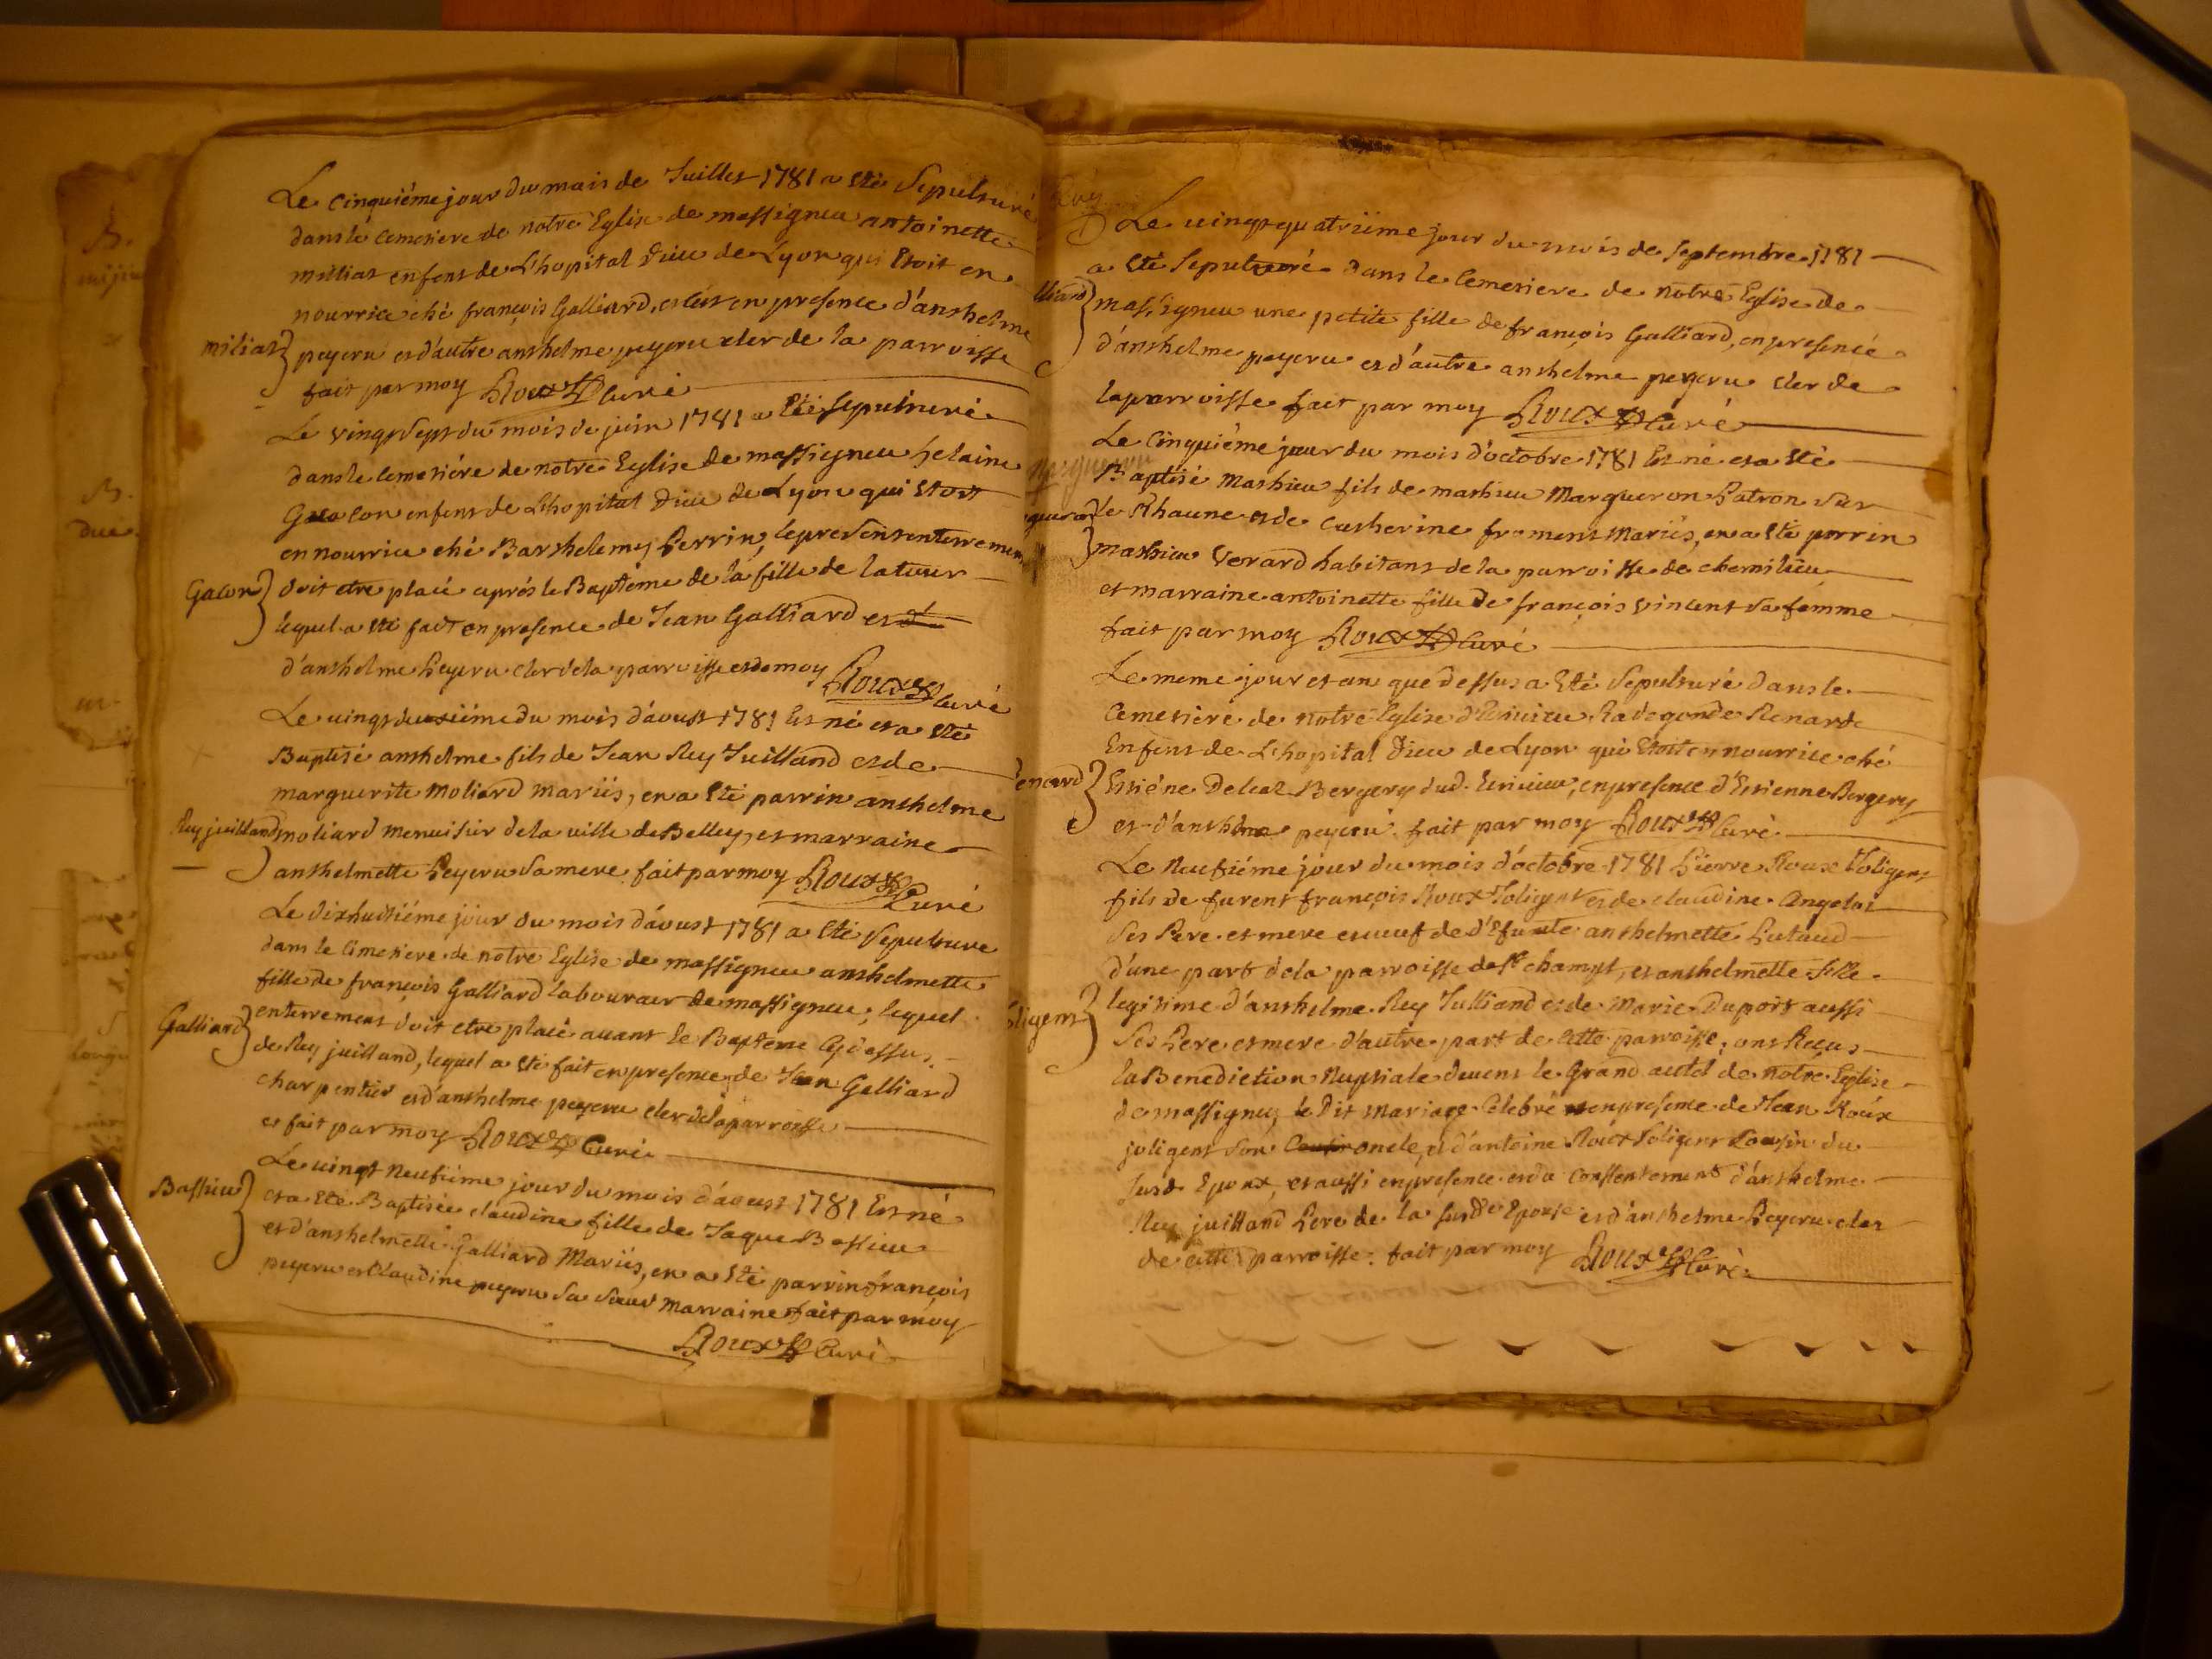 Le cinquiéme jour du mois de Juillet 1781 a été sepulturé
dans le cemetiere de notre Eglise de massigneu antoinette
milias enfent de L'hopital Dieu de Lyon qui Etoit en
nourrice ché françois Galliard, et cest en presence d'anthelme
milias
peyeru et d'autre anthelme peyeru cler de la parroisse
fait par moy Roux Curé
Le vingt sept du mois de juin 1781 a été sepulturé
dans le cemetiére de notre Eglise de massigneu helaine
Gacon enfent de L'hopital Dieu de Lyon qui Etoit
en nourrice ché Barthelemy Perrin, le present enterrement
Gacon
doit etre placé aprés le Baptéme de la fille de latour
lequel a été fait en presence de Jean Galliard et d'
d'anthelme Peyeru cler de la parroisse et de moy Roux Curé
Le vingt deuxiéme du mois d'avust 1781 Est né et a été
Baptisé anthelme fils de Jean Rey Juilland et de
marguerite Moliard mariés, en a été parrin anthelme
Rey juilland
moliard menuisier de la ville de Belley, et marraine
anthelmette Peyeru sa mere fait par moy Roux Curé
Le dixhuitiéme jour du mois d'avust 1781 a été sepulture
dans le cimetiere de notre Eglise de massigneu anthelmette
fille de françois Galliard laboureur de massigneu, lequel
Galliard
enterrement doit etre placé avant le Bapteme Cydessus
de Rey juilland, lequel a été fait en presence de Jean Galliard
charpentier et d'anthelme peyeru cler de la parroisse
et fait par moy Roux Curé
Le vingt neufiéme jour du mois d'avust 1781 Est né
Bassieu
et a été Baptisée claudine fille de Jaque Bassieu
et d'anthelmette Galliard Mariés, en a été parrin françois
peyeru et Claudine peyeru sa soeur marraine fait par moy
Roux Curé
Le vingt quatriéme jour du mois de Septembre 1781
a été sepulturé dans le cemetiere de notre Eglise de
lliard
massigneu une petite fille de françois Galliard, en presence
d'anthelme peyeru et d'autre anthelme peyeru cler de
la parroisse fait par moy Roux Curé
Le cinquiéme jour du mois d'octobre 1781 Est né et a été
Baptisé Mathieu fils de mathieu Margueron Patron sur
gueron
le Rhaune et de Catherine froment Mariés, en a été parrin
mathieu Verard habitant de la parroisse de chemilieu
et marraine antoinette fille de françois vincent sa femme
fait par moy Roux Curé
Le meme jour et an que dessus a Eté Sepulturé dans le
cemetiére de notre Eglise d' Radegonde Renarde
Enfent de L'hopital Dieu de Lyon qui Etoit en nourrice ché
enard
Etiéne Deleaz Bergery dud. , en presence d'Etienne Bergery
et d'anthelme peyeru fait par moy Roux Curé
Le Neufiéme jour du mois d'octobre 1781 Pierre Roux Joligent
fils de furent françois Roux Joligent et de claudine Angelot
ses Pere et mere et veuf de d'Efunte anthelmette Putaud
d'une part de la parroisse de St champt, et anthelmette fille
ligent
legitime d'anthelme Rey Julliand et de Marie Duport aussi
ses Pere et mere d'autre part de cette parroisse, ont Reçus
la Benediction Nuptiale devent le Grand autel de notre Eglise
de massigneu, le Dit mariage Celebré en presence de Jean Roux
joligent son oncle, et d'antoine Roux Joligent Cousin du
susd. Epoux, et aussi en presence et du consentement d'anthelme
Rey juilland Pere de la susde Epouse et d'anthelme Peyeru cler
de cette parroisse. fait par moy Roux Curé